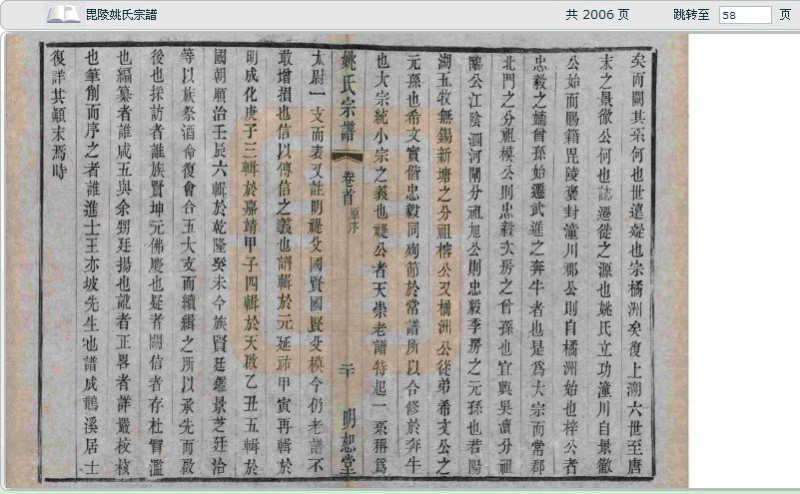 毘陵姚氏宗譜
共 2006 页
跳转至 58 页
矣而闕其系何也世遠難也宗橘洲矣復上溯六世至唐
末之景徹公何也誌遷徙之源也姚氏立功潼川自景徹
公始而賜籍毘陵褒封潼川郡公則自橘洲始也梓公者
忠毅之嫡曾孫始遷武進之奔牛者也是為大宗而常郡
北門之分祖模公則忠毅次房之曾孫也宜興吳瀆分祖
公江陰泗河閘分祖旭公則忠毅季房之元孫也若陽
湖五牧無錫新塘之分祖榕公又橘洲公從弟希文公之
元孫也希文實偕忠毅同殉節於常譜所以合修於奔牛
也大宗統小宗之義也禔公者天崇老譜特起一系稱為
姚氏宗譜 卷首 原序 二十 明恕堂
太尉一支而表又註明禔父國賢國賢父模今仍老譜不
敢增損也信以傳信之義也譜輯於元延祐甲寅再輯於
明成化庚子三輯於嘉靖甲子四輯於天啟乙丑五輯於
國朝順治壬辰六輯於乾隆癸未今族賢廷鑑景芝廷治
等以族祭酒命復會合五大支而續緝之所以承先而啟
後也採訪者誰族賢坤元佛慶也疑者闕信者存杜冒濫
也編纂者誰咸五與余甥廷揚也訛者正畧者詳嚴校核
也筆削而序之者誰進士王亦坡先生也譜成鸛溪居士
復詳其顛末焉時